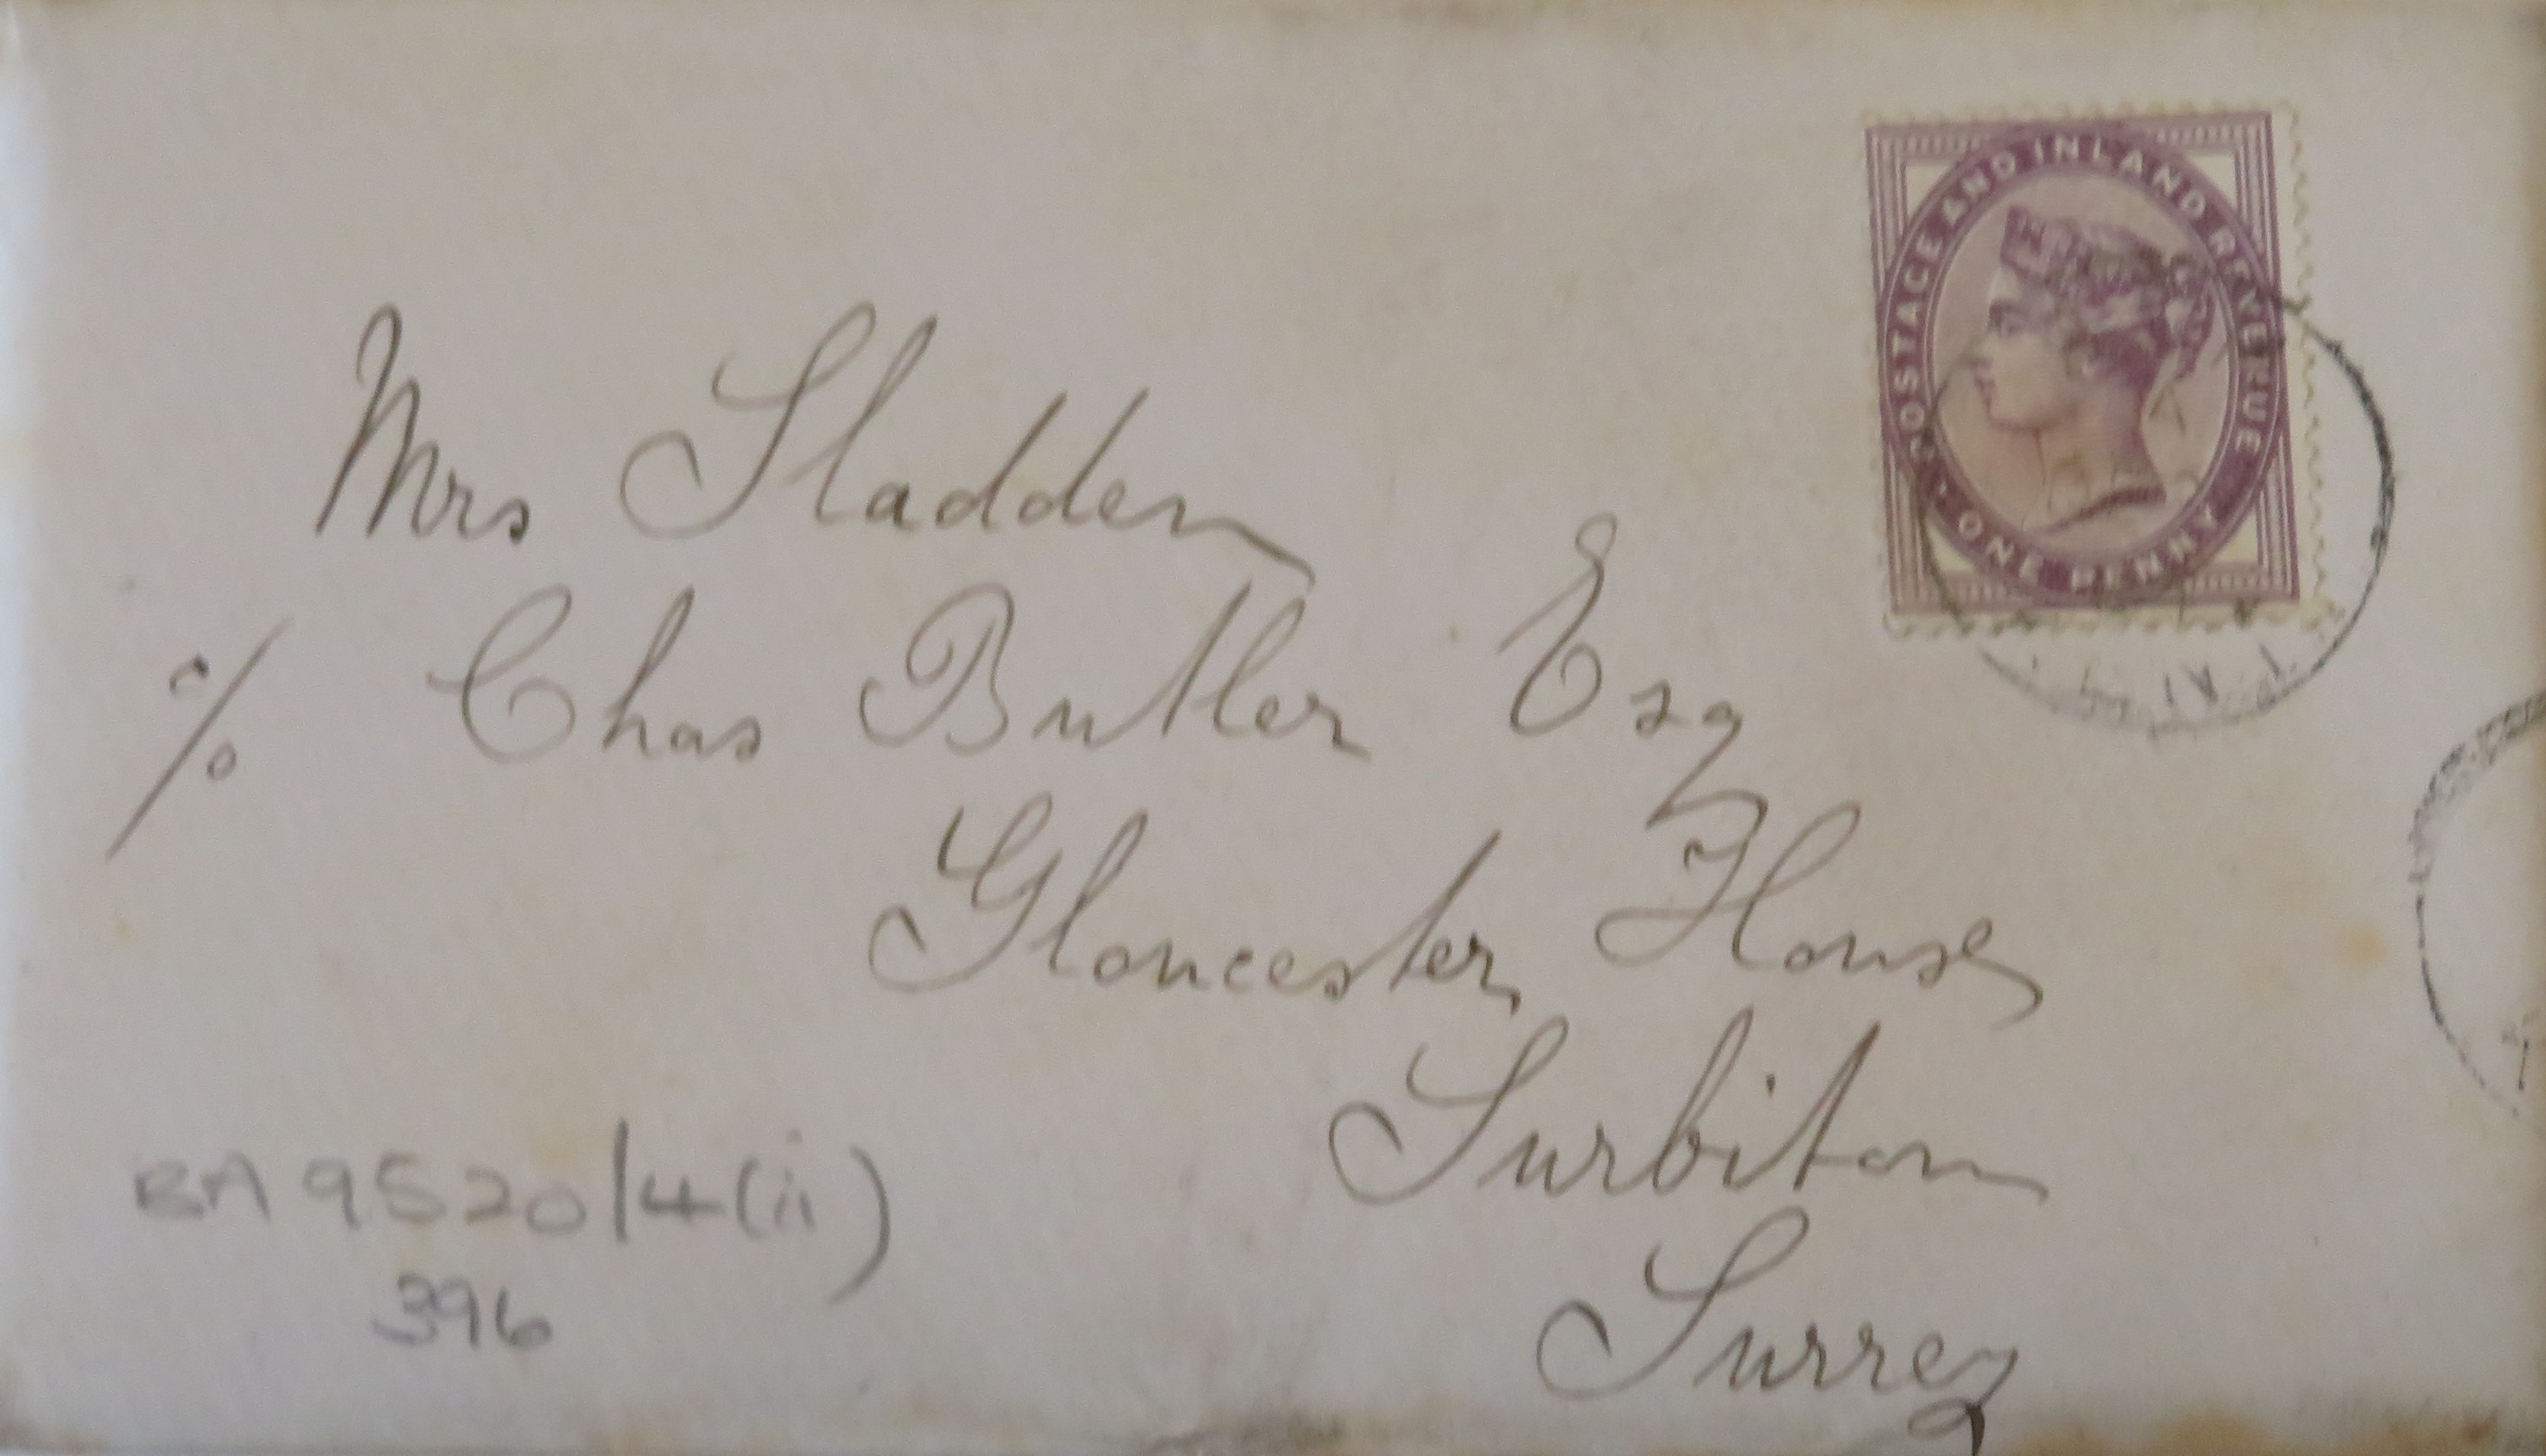 POSTAGE AND INLAND REVENUE
ONE PENNY
Mrs Sladden
c/o Chas Butler Esq
Gloucester House
Surbiton
Surrey
BA 9520/4(ii)
396